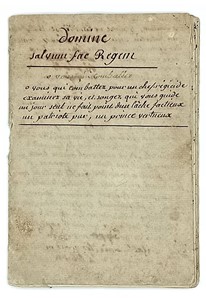 domine
salvum fac Regem
o vous qui combattez pour un chef régicide
examinez sa vie, et songez qui vous guide
un jour seul ne fait point d'un lâche factieux
un patriote pur, un prince vertueux